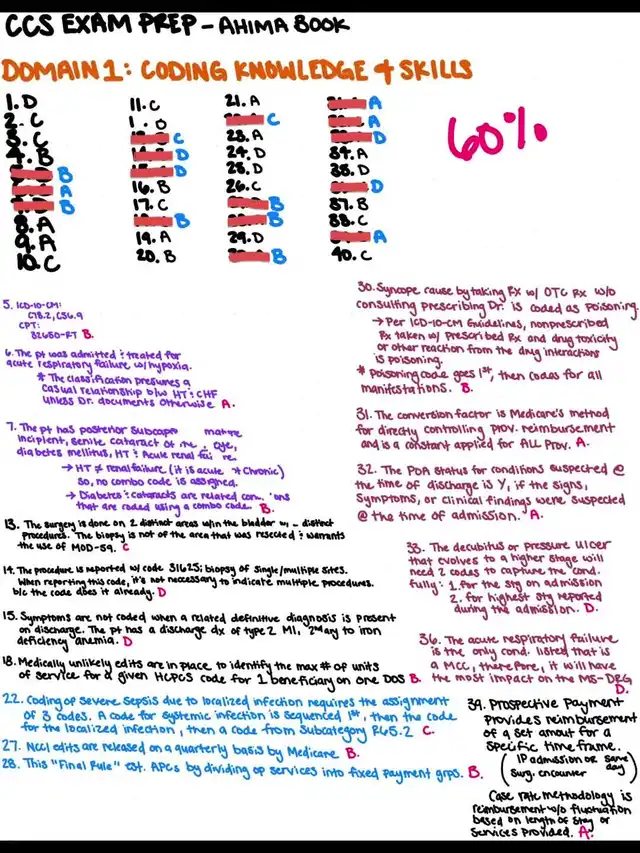 CCS EXAM PREP - AHIMA BOOK
DOMAIN 1: CODING KNOWLEDGE & SKILLS
60%
1. D
2. C
3. C
4. B
B
A
B
8. A
9. A
10. C
11. C
1 . D
C
D
D
16. B
17. C
B
19. A
20. B
21. A
C
23. A
24. D
25. D
26. C
B
B
29. D
B
A
A
D
34. A
35. D
D
37. B
38. C
A
40. C
5. ICD-10-CM:
C78.2, C56.9
CPT:
32650-RT B.
6. The pt was admitted & treated for
acute respiratory failure w/hypoxia.
* The classification presumes a
casual relationship b/w HT & CHF
unless Dr. documents otherwise A.
7. The pt has posterior subcap mature
incipient, senile cataract of eye,
diabetes mellitus, HT & Acute renal failure
→ HT ≠ renal failure (it is acute chronic)
So, no combo code is assigned.
→ Diabetes & cataracts are related ons
that are coded using a combo code. B.
13. The surgery is done on 2 distinct areas w/in the bladder w/ distinct
procedures. The biopsy is not of the area that was resected & warrants
the use of MOD-59. C
14. The procedure is reported w/ code 31625; biopsy of single/multiple sites.
When reporting this code, it's not necessary to indicate multiple procedures.
b/c the code does it already. D
15. Symptoms are not coded when a related definitive diagnosis is present
on discharge. The pt has a discharge dx of type 2 MI, 2ndary to iron
deficiency anemia. D
18. Medically unlikely edits are in place to identify the max # of units
of service for a given HCPCS code for 1 beneficiary on one DOS B.
22. Coding of severe sepsis due to localized infection requires the assignment
of 3 codes. A code for systemic infection is sequenced 1st, then the code
for the localized infection, then a code from Subcategory R65.2 C.
27. NCCI edits are released on a quarterly basis by Medicare B.
28. This "Final Rule" est. APCs by dividing op services into fixed payment grps. B.
30. Syncope cause by taking Rx w/ OTC Rx w/o
consulting prescribing Dr. is coded as poisoning.
→ Per ICD-10-CM Guidelines, nonprescribed
Rx taken w/ prescribed Rx and drug toxicity
or other reaction from the drug interactions
is poisoning.
* Poisoning code goes 1st, then codes for all
manifestations. B.
31. The conversion factor is Medicare's method
for directly controlling prov. reimbursement
and is a constant applied for ALL Prov. A.
32. The POA status for conditions suspected @
the time of discharge is Y, if the signs,
Symptoms, or clinical findings were suspected
@ the time of admission. A.
33. The decubitus or pressure ulcer
that evolves to a higher stage will
need 2 codes to capture the cond.
fully: 1. for the stg on admission
2. for highest stg reported
during the admission. D.
36. The acute respiratory failure
is the only cond. listed that is
a MCC, therefore, it will have
the most impact on the MS-DRG
D.
39. Prospective Payment
Provides reimbursement
of a set amout for a
specific time frame.
(IP admission or same day
surg. encounter)
Case rate methodology is
reimbursement w/o fluctuation
based on length of stay or
services provided. A.